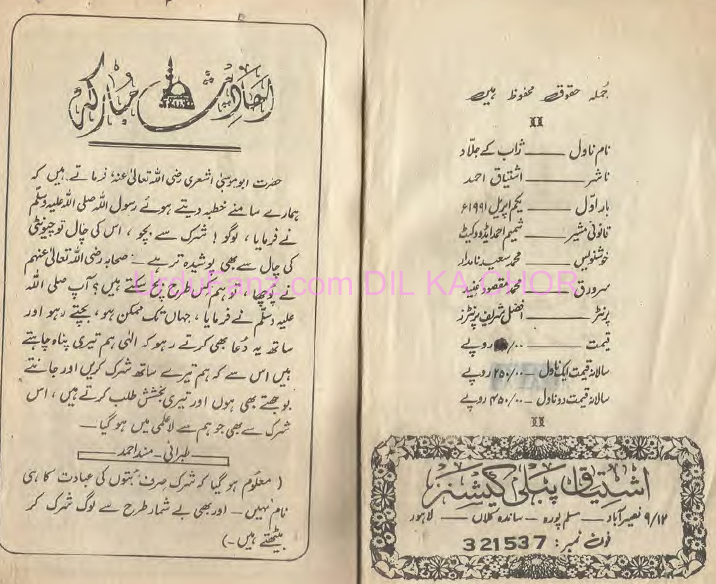 جملہ حقوق محفوظ ہیں
نام ناول — ژاب کے جلاد
ناشر — اشتیاق احمد
بار اوّل — یکم اپریل ۱۹۹۱ء
قانونی مشیر — شمیم احمد ایڈووکیٹ
خوشنویس — محمد سعید نامدار
سرورق — محمد مقصود
پرنٹر — افضل شریف پرنٹرز
قیمت — /۰۰ روپے
سالانہ قیمت ایک ناول — ۲۵۰/۰۰ روپے
سالانہ قیمت دو ناول — ۴۵۰/۰۰ روپے
اشتیاق پبلی کیشنز
۹/۱۲ نصیر آباد — مسلم پورہ — ساندہ کلاں — لاہور
فون نمبر: 321537
احادیث مبارکہ
حضرت ابو موسیٰ اشعری رضی اللہ تعالیٰ عنہٗ فرماتے ہیں کہ
ہمارے سامنے خطبہ دیتے ہوئے رسول اللہ صلی اللہ علیہ وسلّم
نے فرمایا، لوگو! شرک سے بچو، اس کی چال تو چیونٹی
کی چال سے بھی پوشیدہ تر ہے — صحابہ رضی اللہ تعالیٰ عنہم
نے پوچھا، تو ہم کس طرح ہیں؟ آپ صلی اللہ
علیہ وسلّم نے فرمایا، جہاں تک ممکن ہو، بچتے رہو اور
ساتھ یہ دُعا بھی کرتے رہو کہ الٰہی ہم تیری پناہ چاہتے
ہیں اس سے کہ ہم تیرے ساتھ شرک کریں اور جانتے
بوجھتے بھی ہوں اور تیری بخشش طلب کرتے ہیں، اس
شرک سے بھی جو ہم سے لاعلمی میں ہو گیا —
طبرانی — مسند احمد
( معلوم ہو گیا کہ شرک صرف بتوں کی عبادت کا ہی
نام نہیں — اور بھی بے شمار طرح سے لوگ شرک کر
بیٹھتے ہیں — )
UrduFanz.com DIL KA CHOR